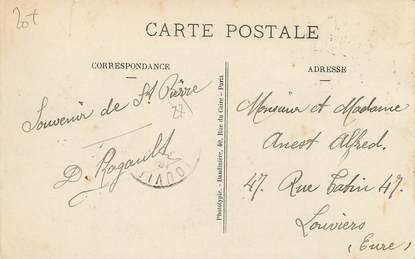 20t
CARTE POSTALE
CORRESPONDANCE
ADRESSE
Souvenir de St Pierre
27
D. Ragault
LOUVIE
Phototypie. Baudinière, 40, Rue du Caire - Paris
Monsieur et Madame
Anest Alfred.
47. Rue Tatin 47.
Louviers
(Eure)